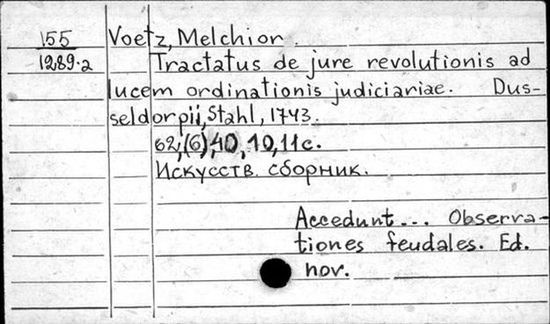 155
1289.2
Voetz, Melchior.
Tractatus de jure revolutionis ad
lucem ordinationis judiciariae. Dus-
seldorpii, Stahl, 1743.
62,(6),10,10,11с.
Искусств. сборник.
Accedunt... Observa-
tiones feudales. Ed.
nov.